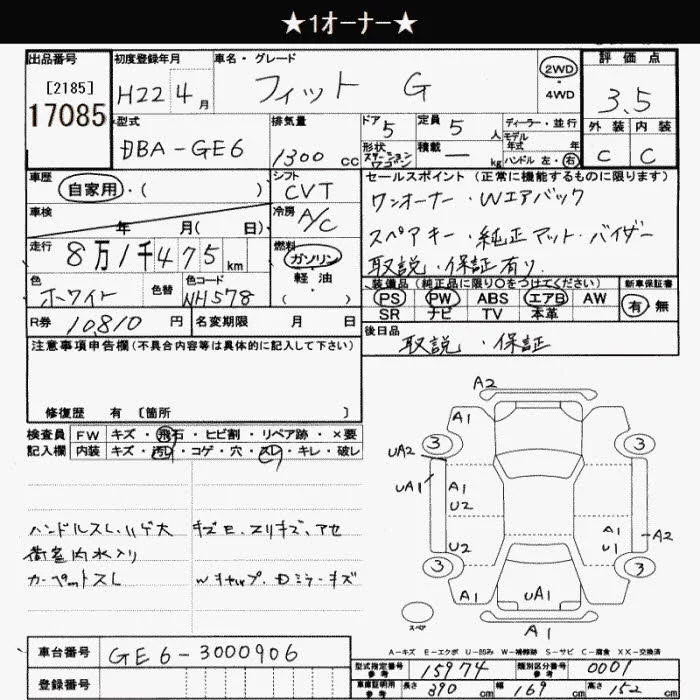 ★1オーナー★
出品番号 初度登録年月 車名・グレード 評価点
[2185] H22 4月 フィット G 2WD ・4WD 3.5
17085
型式 排気量 ドア 定員 ディーラー・並行 外装 内装
DBA-GE6 1300cc 5 5人 モデル年式 年 C C
形状 ステーションワゴン 積載 ― kg ハンドル 左・右
車歴 シフト セールスポイント(正常に機能するものに限ります)
自家用・( ) CVT ワンオーナー・Wエアバック
車検 年 月( 日) 冷房 A/C スペアキー・純正マット・バイザー
走行 8万1千475km 燃料 ガソリン 取説・保証有り
軽油 ( )
色 色替 色コード 装備品(純正品に限り〇をつけてください) 新車保証書
ホワイト NH578 PS PW ABS エアB AW 有 無
SR ナビ TV 本革
R券 10,810円 名変期限 月 日 後日品
取説・保証
注意事項申告欄(不具合内容等は具体的に記入して下さい)
修復歴 有 〔箇所 〕
検査員 FW キズ・飛石・ヒビ割・リペア跡・×要
記入欄 内装 キズ・汚れ・コゲ・穴・スレ・キレ・破レ
A2
A1
3 3
UA2
UA1 A1
U2 A1
U1 A2
U2
3 3
UA1
スペア A1
カーペットスレ
A-キズ E-エクボ U-凹み W-補修跡 S-サビ C-腐食 XX-交換済
車台番号 GE6-3000906
型式指定番号 参考 15974 類別区分番号 参考 0001
登録番号 車庫証明用 参考 長さ 390cm 幅 169cm 高さ 152cm